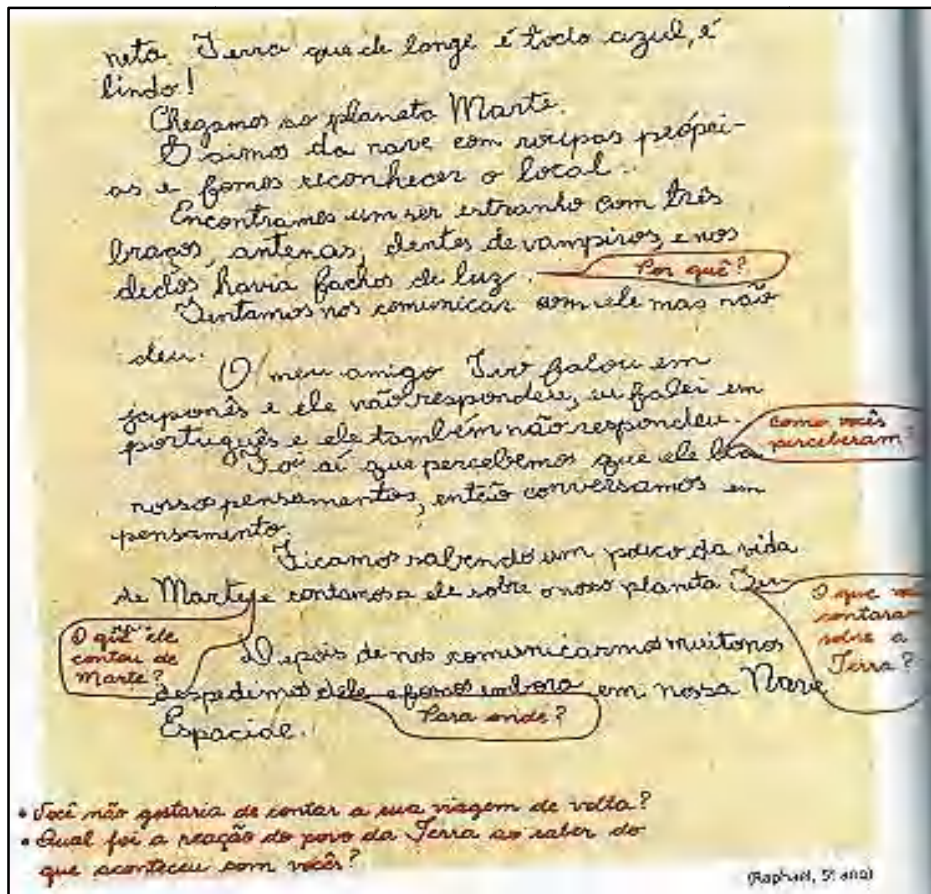 neta Terra que de longe é todo azul, é
lindo!
Chegamos ao planeta Marte.
Saimos da nave com roupas própri-
as e fomos reconhecer o local.
Encontramos um ser estranho com três
braços, antenas, dentes de vampiros, e nos
dedos havia fachos de luz.
Por quê?
Tentamos nos comunicar com ele mas não
deu.
O meu amigo falou em
japonês e ele não respondeu, eu falei em
português e ele também não respondeu.
como vocês
perceberam?
Foi aí que percebemos que ele lia
nosso pensamentos, então conversamos em
pensamento.
Ficamos sabendo um pouco da vida
de Marte e contamos a ele sobre o noso planeta
O que ele
contou de
Marte?
O que
contaram
sobre a
Terra?
Depois de nos comunicarmos muito nos
despedimos dele e fomos embora em nossa Nave
Espacial.
Para onde?
• Você não gostaria de contar a sua viagem de volta?
• Qual foi a reação do povo da Terra ao saber do
que aconteceu com vocês?
(Raphael, 5º ano)